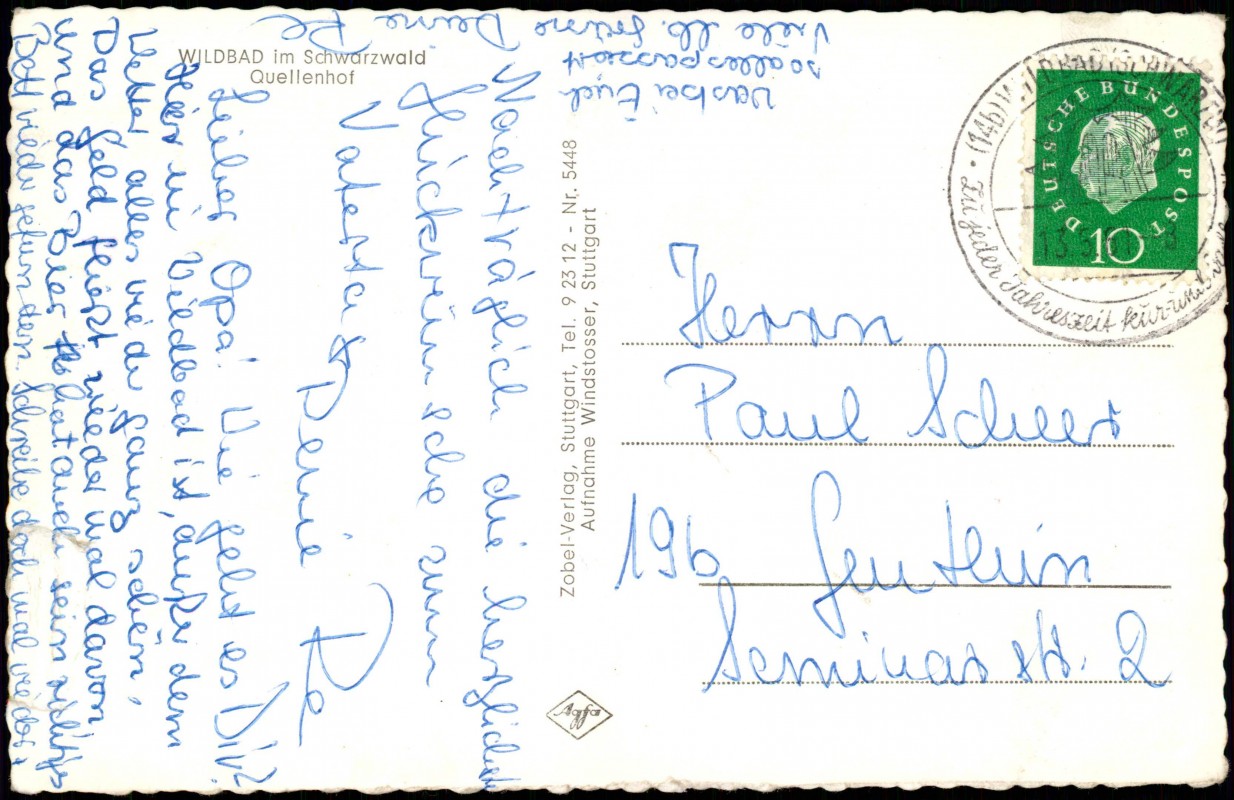 WILDBAD im Schwarzwald
Quellenhof
Nachträglich die herzlichen
Glückwünsche zum
Vatertag Deine
Re
Lieber Opa! Wie geht es Dir?
Hier in Wildbad ist, außer dem
Wetter alles wieder ganz schön,
Das Geld fliezt wieder mal davon
und das Bier hat auch sein richtiges
Bett wieder gefunden. Schreibe doch mal wieder,
was bei Euch
so alles passiert
Viele lb. Grüße Deine Re
Zobel-Verlag, Stuttgart, Tel. 9 23 12 - Nr. 5448
Aufnahme Windstosser, Stuttgart
Agfa
DEUTSCHE BUNDESPOST
10
(14b) WILDBAD (SCHWARZW)
Zu jeder Jahreszeit Kur und
Herrn
Paul Scheer
19b Genthin
Seminarstr. 2